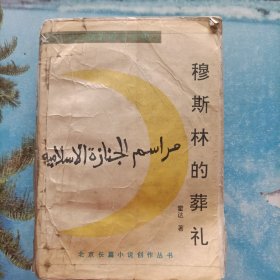 穆斯林的葬礼
مراسم الجنازة الاسلامية
霍达 著
北京长篇小说创作丛书